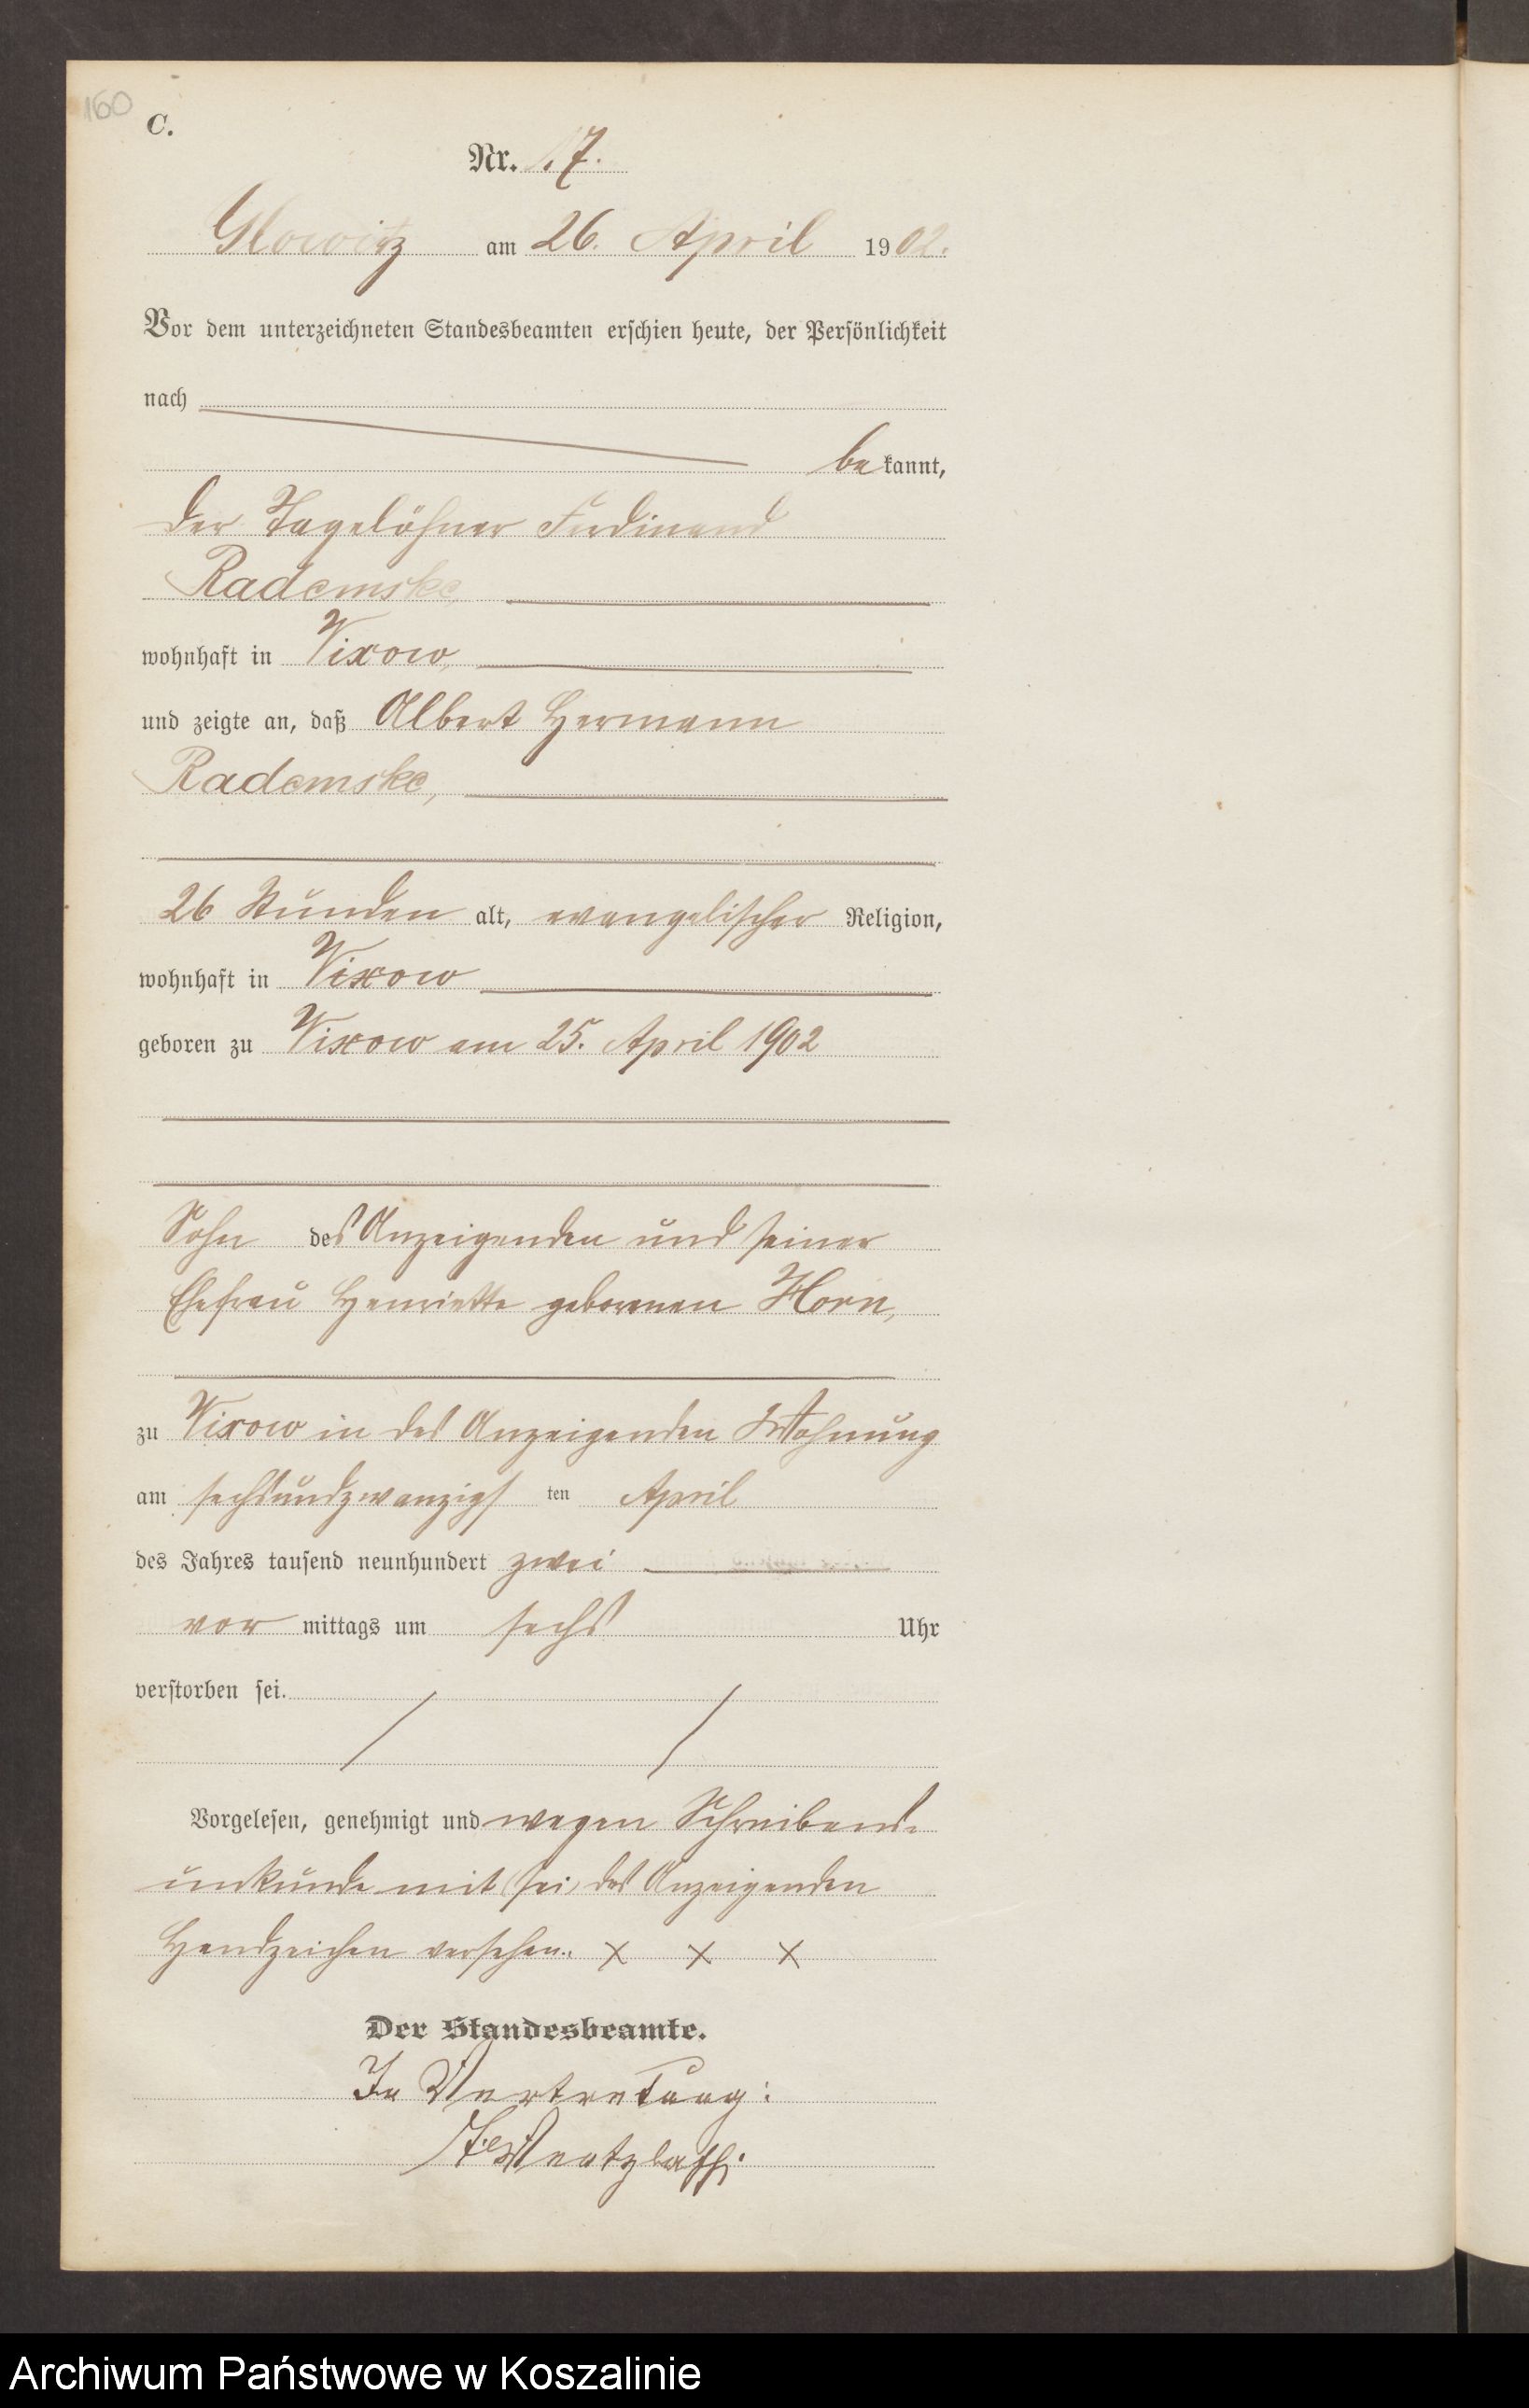 160
C.
Nr. 17.
Glowitz am 26. April 1902.
Vor dem unterzeichneten Standesbeamten erschien heute, der Persönlichkeit
nach
bekannt,
der Tagelöhner Ferdinand
Rademske,
wohnhaft in Vixow,
und zeigte an, daß Albert Hermann
Rademske,
26 Stunden alt, evangelischer Religion,
wohnhaft in Vixow
geboren zu Vixow am 25. April 1902
Sohn des Anzeigenden und seiner
Ehefrau Henriette geborenen Horn,
zu Vixow in des Anzeigenden Wohnung
am sechsundzwanzigsten April
des Jahres tausend neunhundert zwei
vormittags um sechs Uhr
verstorben sei.
Vorgelesen, genehmigt und wegen Schreibens-
unkunde mit des Anzeigenden
Handzeichen versehen. × × ×
Der Standesbeamte.
In Vertretung:
Archiwum Państwowe w Koszalinie